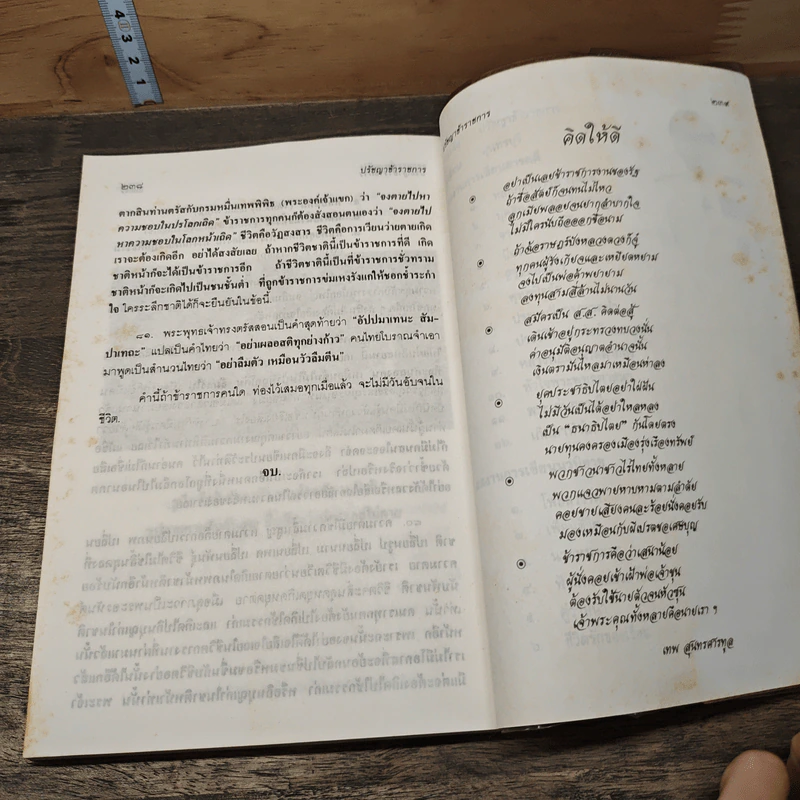 4
3
2
1
๒๓๘
ปรัชญาข้าราชการ
ตากสินท่านตรัสกับกรมหมื่นเทพพิพิธ (พระองค์เจ้าแขก) ว่า "องตายไปหา
ความชอบในปรโลกเถิด" ข้าราชการทุกคนก็ต้องสั่งสอนตนเองว่า "องตายไป
หาความชอบในโลกหน้าเถิด" ชีวิตคือวัฏสงสาร ชีวิตคือการเวียนว่ายตายเกิด
เราจะต้องเกิดอีก อย่าได้สงสัยเลย ถ้าหากชีวิตชาตินี้เป็นข้าราชการที่ดี เกิด
ชาติหน้าก็จะได้เป็นข้าราชการอีก ถ้าชีวิตชาตินี้เป็นขี้ข้าราชการชั่วทราม
ชาติหน้าก็จะเกิดไปเป็นชนชั้นต่ำ ที่ถูกข้าราชการข่มเหงรังแกให้ชอกช้ำระกำ
ใจ ใครระลึกชาติได้ก็จะยืนยันในข้อนี้.
๘๑. พระพุทธเจ้าทรงตรัสสอนเป็นคำสุดท้ายว่า "อัปปมาเทนะ สัม-
ปาเทถะ" แปลเป็นคำไทยว่า "อย่าเผลอสติทุกย่างก้าว" คนไทยโบราณจำเอา
มาพูดเป็นสำนวนไทยว่า "อย่าลืมตัว เหมือนวัวลืมตีน"
คำนี้ถ้าข้าราชการคนใด ท่องไว้เสมอทุกเมื่อแล้ว จะไม่มีวันอับจนใน
ชีวิต.
จบ.
ปรัชญาข้าราชการ
๒๓๙
คิดให้ดี
อย่าเป็นเลยข้าราชการงานของรัฐ
ถ้าซื่อสัตย์ก็จนทนไม่ไหว
ลูกเมียพลอยจนยากลำบากใจ
ไม่มีใครนับถือออกชื่อนาม
ถ้าฉ้อราษฎร์บังหลวงดวงก็จู๋
ทุกคนผู้รังเกียจและเหยียดหยาม
จงไปเป็นพ่อค้าพยายาม
ลงทุนสามสี่ล้านไม่นานวัน
สมัครเป็น ส.ส. คิดต่อสู้
เดินเข้าอยู่กระทรวงทบวงนั่น
ค่าอนุมัติอนุญาตอำนาจนั้น
เงินตรามันไหลมาเหมือนห่าลง
ยุคประชาธิปไตยอย่าใฝ่ฝัน
ไม่มีวันเป็นได้อย่าใหลหลง
เป็น "ธนาธิปไตย" กันโดยตรง
นายทุนคงครองเมืองรุ่งเรืองทรัพย์
พวกชาวนาชาวไร่ไทยทั้งหลาย
พวกแจวพายหาบหามตามลำดับ
คอยขายเสียงคนละร้อยนั่งคอยรับ
มองเหมือนกับผีเปรตขอเศษบุญ
ข้าราชการคือว่าเสนาน้อย
ผู้นั่งคอยเข้าเฝ้าพ่อเจ้าขุน
ต้องรับใช้นายตัวจนหัวซุน
เจ้าพระคุณทั้งหลายคือนายเรา ๆ
เทพ สุนทรศารทูล